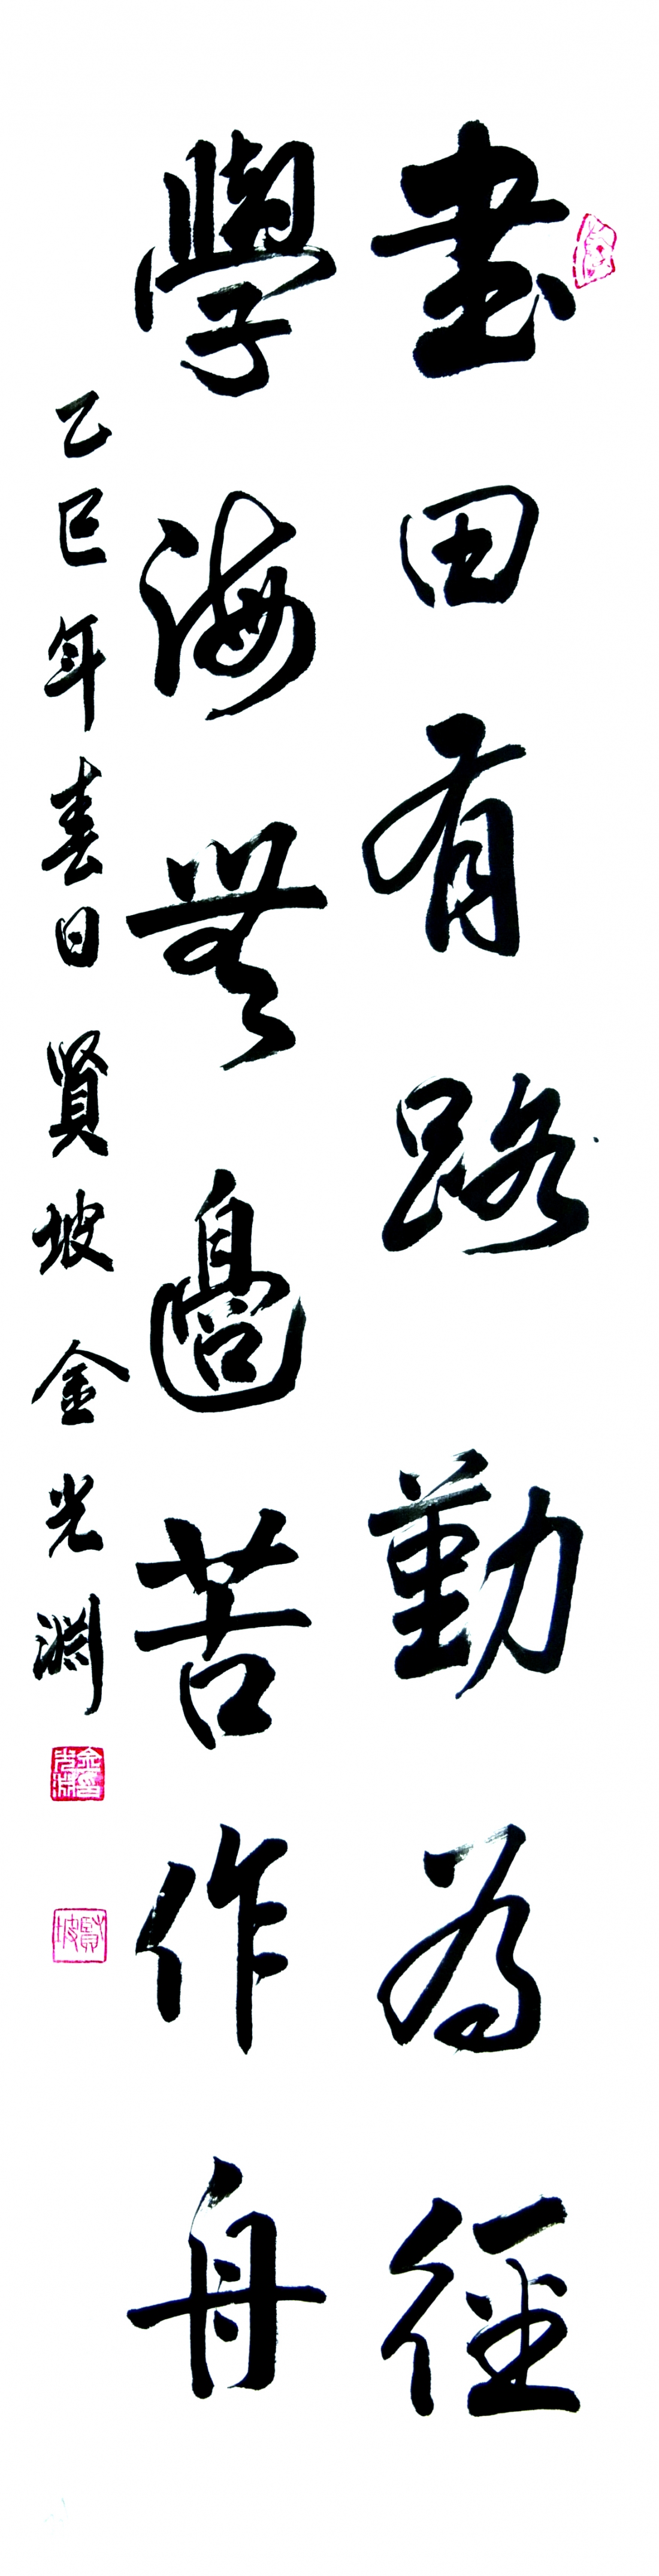 書田有路勤為徑
學海無邊苦作舟
乙巳年春日 賢坡 金光淵
金光淵印
賢坡